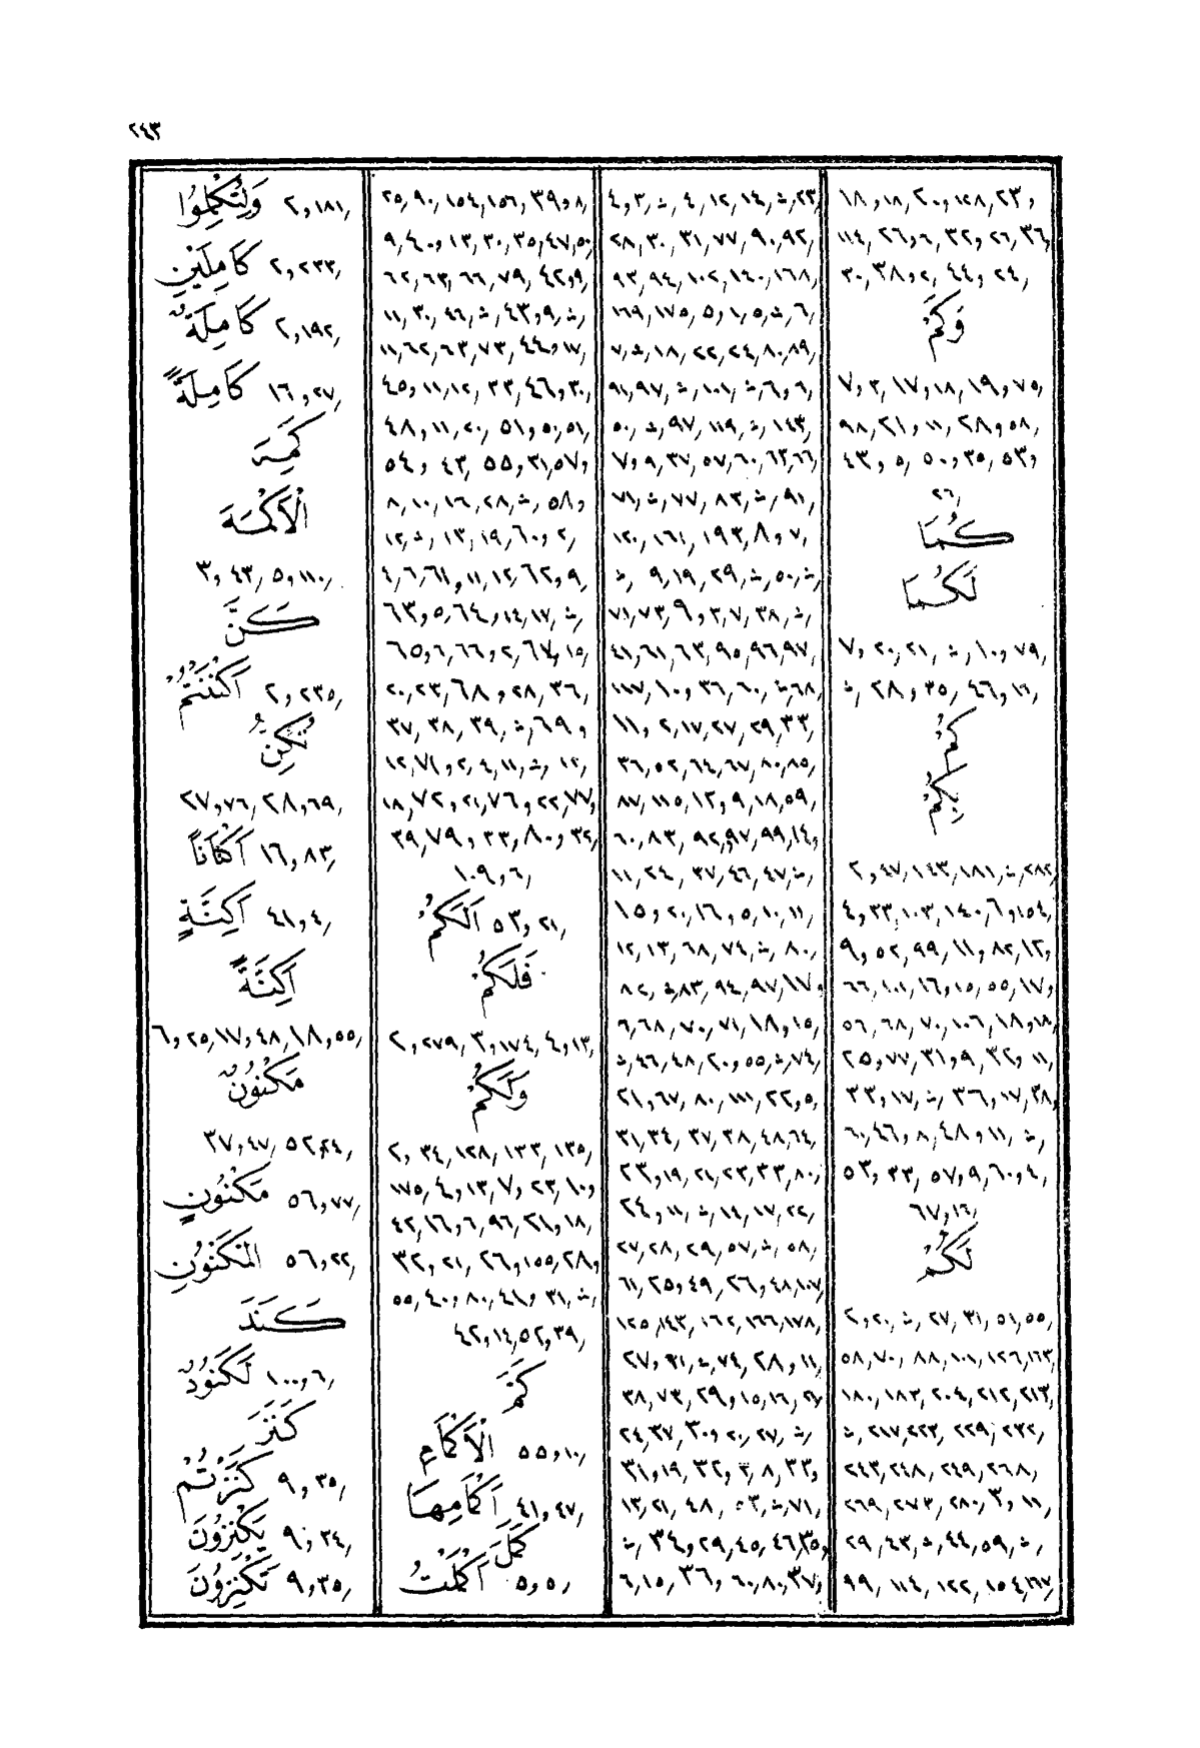 ٢٤٣
١٨ ,١٨, ٢٠, ١٢٨, ٢٣,
١١٤, ٢٦, ٦, ٣٢, ٢٦, ٣٦,
٣٠, ٣٨, ٢, ٤٤, ٢٤,
وَكَمْ
٧, ٣, ١٧, ١٨, ١٩, ٧٥,
٩٨, ٢١, ١١, ٢٨, ٥٨,
٤٣, ٥, ٥٠, ٣٥, ٥٣,
٢٦,
كُمَا
لَكُمَا
٧, ٢٠, ٢١, ث, ١٠, ٧٩,
ث, ٢٨, ٣٥, ٤٦, ١٦,
كُمْ
بِكُمْ
٢, ٤٧, ١٤٣, ١٨١, ث, ٢٨٢,
٤, ٣٣, ١٠٣, ١٤٠, ٦, ١٥٤,
٩, ٥٢, ٩٩, ١١, ٨٢, ١٢,
٦٦, ١٠١, ١٦, ١٥, ٥٥, ١٧,
٥٦, ٦٨, ٧٠, ١٠٦, ١٨, ١٨,
٢٥, ٧٧, ٣١, ٩, ٣٢, ١١,
٣٣, ١٧, ث, ٣٦, ١٧, ٣٨,
٦٠, ٤٦, ٨, ٤٨, ١١, ث,
٥٣, ٣٣, ٥٧, ٩, ٦٠, ٤,
٦٧, ١٦,
لَكُمْ
٢, ٢٠, ث, ٢٧, ٣١, ٥١, ٥٥,
٥٨, ٧٠, ٨٨, ١٠١, ١٢٦, ١٦٣,
١٨٠, ١٨٣, ٢٠٤, ٢١٢, ٢١٣,
ث, ٢١٧, ٢٢٣, ٢٢٩, ٢٣٢,
٢٤٣, ٢٤٨, ٢٤٩, ٢٦٨,
٢٦٩, ٢٧٣, ٢٨٠, ٣, ١١,
٢٩, ٤٣, ث, ٤٤, ٥٩, ث,
٩٩, ١١٤, ١٢٢, ١٥٤, ١٦٧,
٤, ٣, ث, ٤, ١٢, ١٤, ث, ٢٣,
٢٨, ٣٠, ٣١, ٧٧, ٩٠, ٩٢,
٩٣, ٩٤, ١٠٢, ١٤٠, ١٦٨,
١٦٩, ١٧٥, ٥, ١, ٥, ث, ٦,
٧, ث, ١٨, ٢٢, ٢٤, ٨٠, ٨٩,
٩١, ٩٧, ث, ١٠١, ث, ٦, ٦,
٥٠, ث, ٩٧, ١١٩, ث, ١٤٣,
٧, ٩, ٣٧, ٥٧, ٦٠, ٦٢, ٦٦,
٧١, ث, ٧٧, ٨٣, ث, ٩١,
١٢٠, ١٦١, ١٩٣, ٨, ٧,
ث, ٩, ١٩, ٢٩, ث, ٥٠, ث,
٧١, ٧٣, ٩, ٣, ٧, ٣٨, ث,
٤١, ٦١, ٦٣, ٩٥, ٩٦, ٩٧,
١١٧, ١٠, ٣٦, ٦٠, ث, ٦٨,
١١, ٢, ١٧, ٢٧, ٢٩, ٣٣,
٣٦, ٥٢, ٦٤, ٦٧, ٨٠, ٨٥,
٨٧, ١١٥, ١٢, ٩, ١٨, ٥٩,
٦٠, ٨٣, ٩٢, ٩٧, ٩٩, ١٤,
١١, ٢٤, ٣٧, ٤٦, ٤٧, ث,
١٥, ٢٠, ١٦, ٥, ١٠, ١١,
١٢, ١٣, ٦٨, ٧٤, ث, ٨٠,
٨٢, ث, ٨٣, ٩٤, ٩٧, ١٧,
٦, ٦٨, ٧٠, ٧١, ١٨, ١٥,
ث, ٤٦, ٤٨, ٢٠, ٥٥, ث, ٧٤,
٢١, ٦٧, ٨٠, ١١١, ٢٢, ٥,
٣١, ٣٤, ٣٧, ٣٨, ٤٨, ٦٤,
٢٣, ١٩, ٢١, ٢٣, ٣٣, ٨٠,
٢٤, ١١, ث, ١٤, ١٧, ٢٢,
٢٧, ٢٨, ٢٩, ٥٧, ث, ٥٨,
٦١, ٢٥, ٤٩, ٢٦, ٤٨, ١٠٧,
١٢٥, ١٤٣, ١٦٢, ١٦٦, ١٧٨,
٢٧, ٣١, ث, ٧٤, ٢٨, ١١,
٣٨, ٧٣, ٢٩, ١٥, ١٦,
٢٤, ٣٧, ٣٠, ٢٠, ٢٧, ث,
٣١, ١٩, ٣٢, ٣, ٨, ٣٣,
١٣, ٢١, ٤٨, ٥٣, ث, ٧١,
ث, ٣٤, ٢٩, ٤٥, ٤٦, ٣٥,
٦, ١٥, ٣٦, ٦٠, ٨٠, ٣٧,
٢٥, ٩٠, ١٥٤, ١٥٦, ٣٩, ٨,
٩, ٤٠, ١٣, ٣٠, ٣٥, ٤٧, ٥٠,
٦٢, ٦٣, ٦٦, ٧٩, ٤٢, ٩,
١١, ٣٠, ٤٦, ث, ٤٣, ٩, ث,
١١, ٦٢, ٦٣, ٧٣, ٤٤, ١٧,
٤٥, ١١, ١٢, ٣٣, ٤٦, ٣٠,
٤٨, ١١, ٢٠, ٥١, ٥٠, ٥١,
٥٤, ٤٣, ٥٥, ٣١, ٥٧,
٨, ١٠, ١٦, ٢٨, ث, ٥٨,
١٢, ث, ١٣, ١٩, ٦٠, ٢,
٤, ٦, ٦١, ١١, ١٢, ٦٢, ٩,
٦٣, ٥, ٦٤, ١٤, ١٧, ث,
٦٥, ٦, ٦٦, ٢, ٦٧, ١٥,
٢٠, ٢٣, ٦٨, ٢٨, ٣٦,
٣٧, ٣٨, ٣٩, ث, ٦٩,
١٢, ٧١, ٢, ٤, ١١, ث, ١٢,
١٨, ٧٢, ٢١, ٧٦, ٢٢, ٧٧,
٣٩, ٧٩, ٣٣, ٨٠, ٣٢,
١٠٩, ٦,
اَلَكُمْ ٥٣, ٢١,
فَلَكُمْ
٢, ٢٧٩, ٣, ١٧٤, ٤, ١٣,
وَلَكُمْ
٢, ٣٤, ١٢٨, ١٣٣, ١٣٥,
١٧٥, ٤, ١٣, ٧, ٢٣, ١٠,
٤٢, ١٦, ٦, ٩٦, ٢١, ١٨,
٣٢, ٢١, ٢٦, ١٥٥, ٢٨,
٥٥, ٤٠, ٨٠, ٤١, ٣١, ث,
٤٢, ١٤, ٥٢, ٣٩,
كَمَّ
الْاَكْمَامِ ٥٥, ١٠,
اَكْمَامِهَا ٤١, ٤٧,
كَمَلَ
اَكْمَلْتُ ٥, ٥,
وَلِتُكْمِلُوا ٢, ١٨١,
كَامِلَيْنِ ٢, ٢٣٣,
كَامِلَةٌ ٢, ١٩٢,
كَامِلَةً ١٦, ٢٧,
كَمِهَ
الْاَكْمَهَ
٣, ٤٣, ٥, ١١٠,
كَنَّ
اَكْنَنْتُمْ ٢, ٢٣٥,
تُكِنُّ
٢٧, ٧٦, ٢٨, ٦٩,
اَكْنَانًا ١٦, ٨٣,
اَكِنَّةٍ ٤١, ٤,
اَكِنَّةً
٦, ٢٥, ١٧, ٤٨, ١٨, ٥٥,
مَكْنُونٌ
٣٧, ٤٧, ٥٢, ٢٤,
مَكْنُونٍ ٥٦, ٧٧,
الْمَكْنُونِ ٥٦, ٢٢,
كَنَدَ
لَكَنُودٌ ١٠٠, ٦,
كَنَزَ
كَنَزْتُمْ ٩, ٣٥,
يَكْنِزُونَ ٩, ٣٤,
تَكْنِزُونَ ٩, ٣٥,